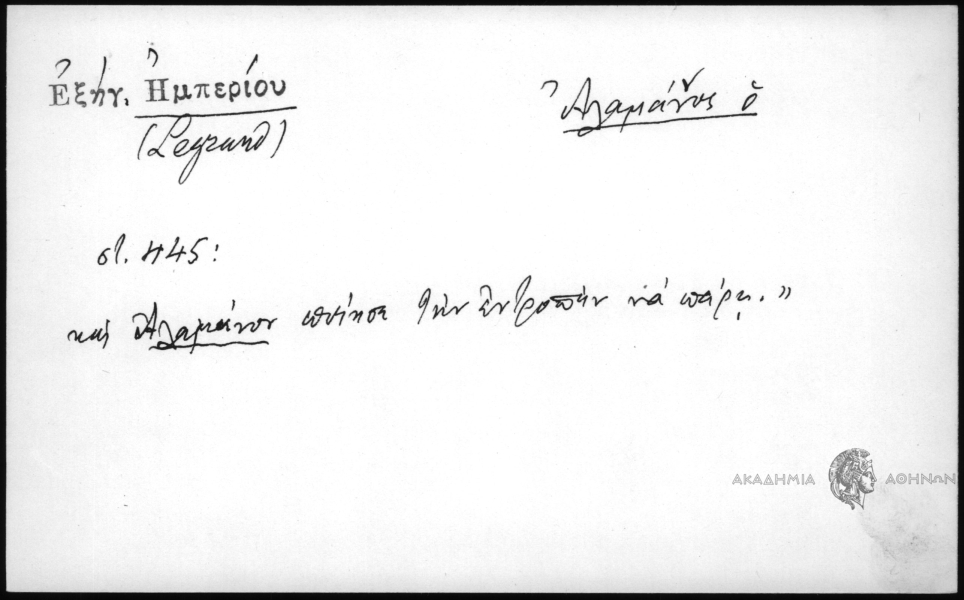 Ἐξήγ. Ἠμπερίου
(Legrand)
Ἀλαμάνος ὁ
στ. 445:
καὶ Ἀλαμάνον ἐποίησε τὴν ἐντροπὴν νὰ πάρῃ."
ΑΚΑΔΗΜΙΑ ΑΘΗΝΩΝ